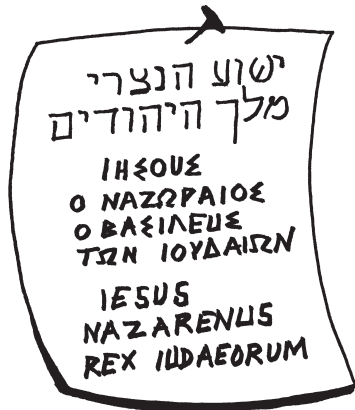 ישוע הנצרי
מלך היהודים
ΙΗΣΟΥΣ
Ο ΝΑΖΩΡΑΙΟΣ
Ο ΒΑΣΙΛΕΥΣ
ΤΩΝ ΙΟΥΔΑΙΩΝ
IESUS
NAZARENUS
REX IUDAEORUM